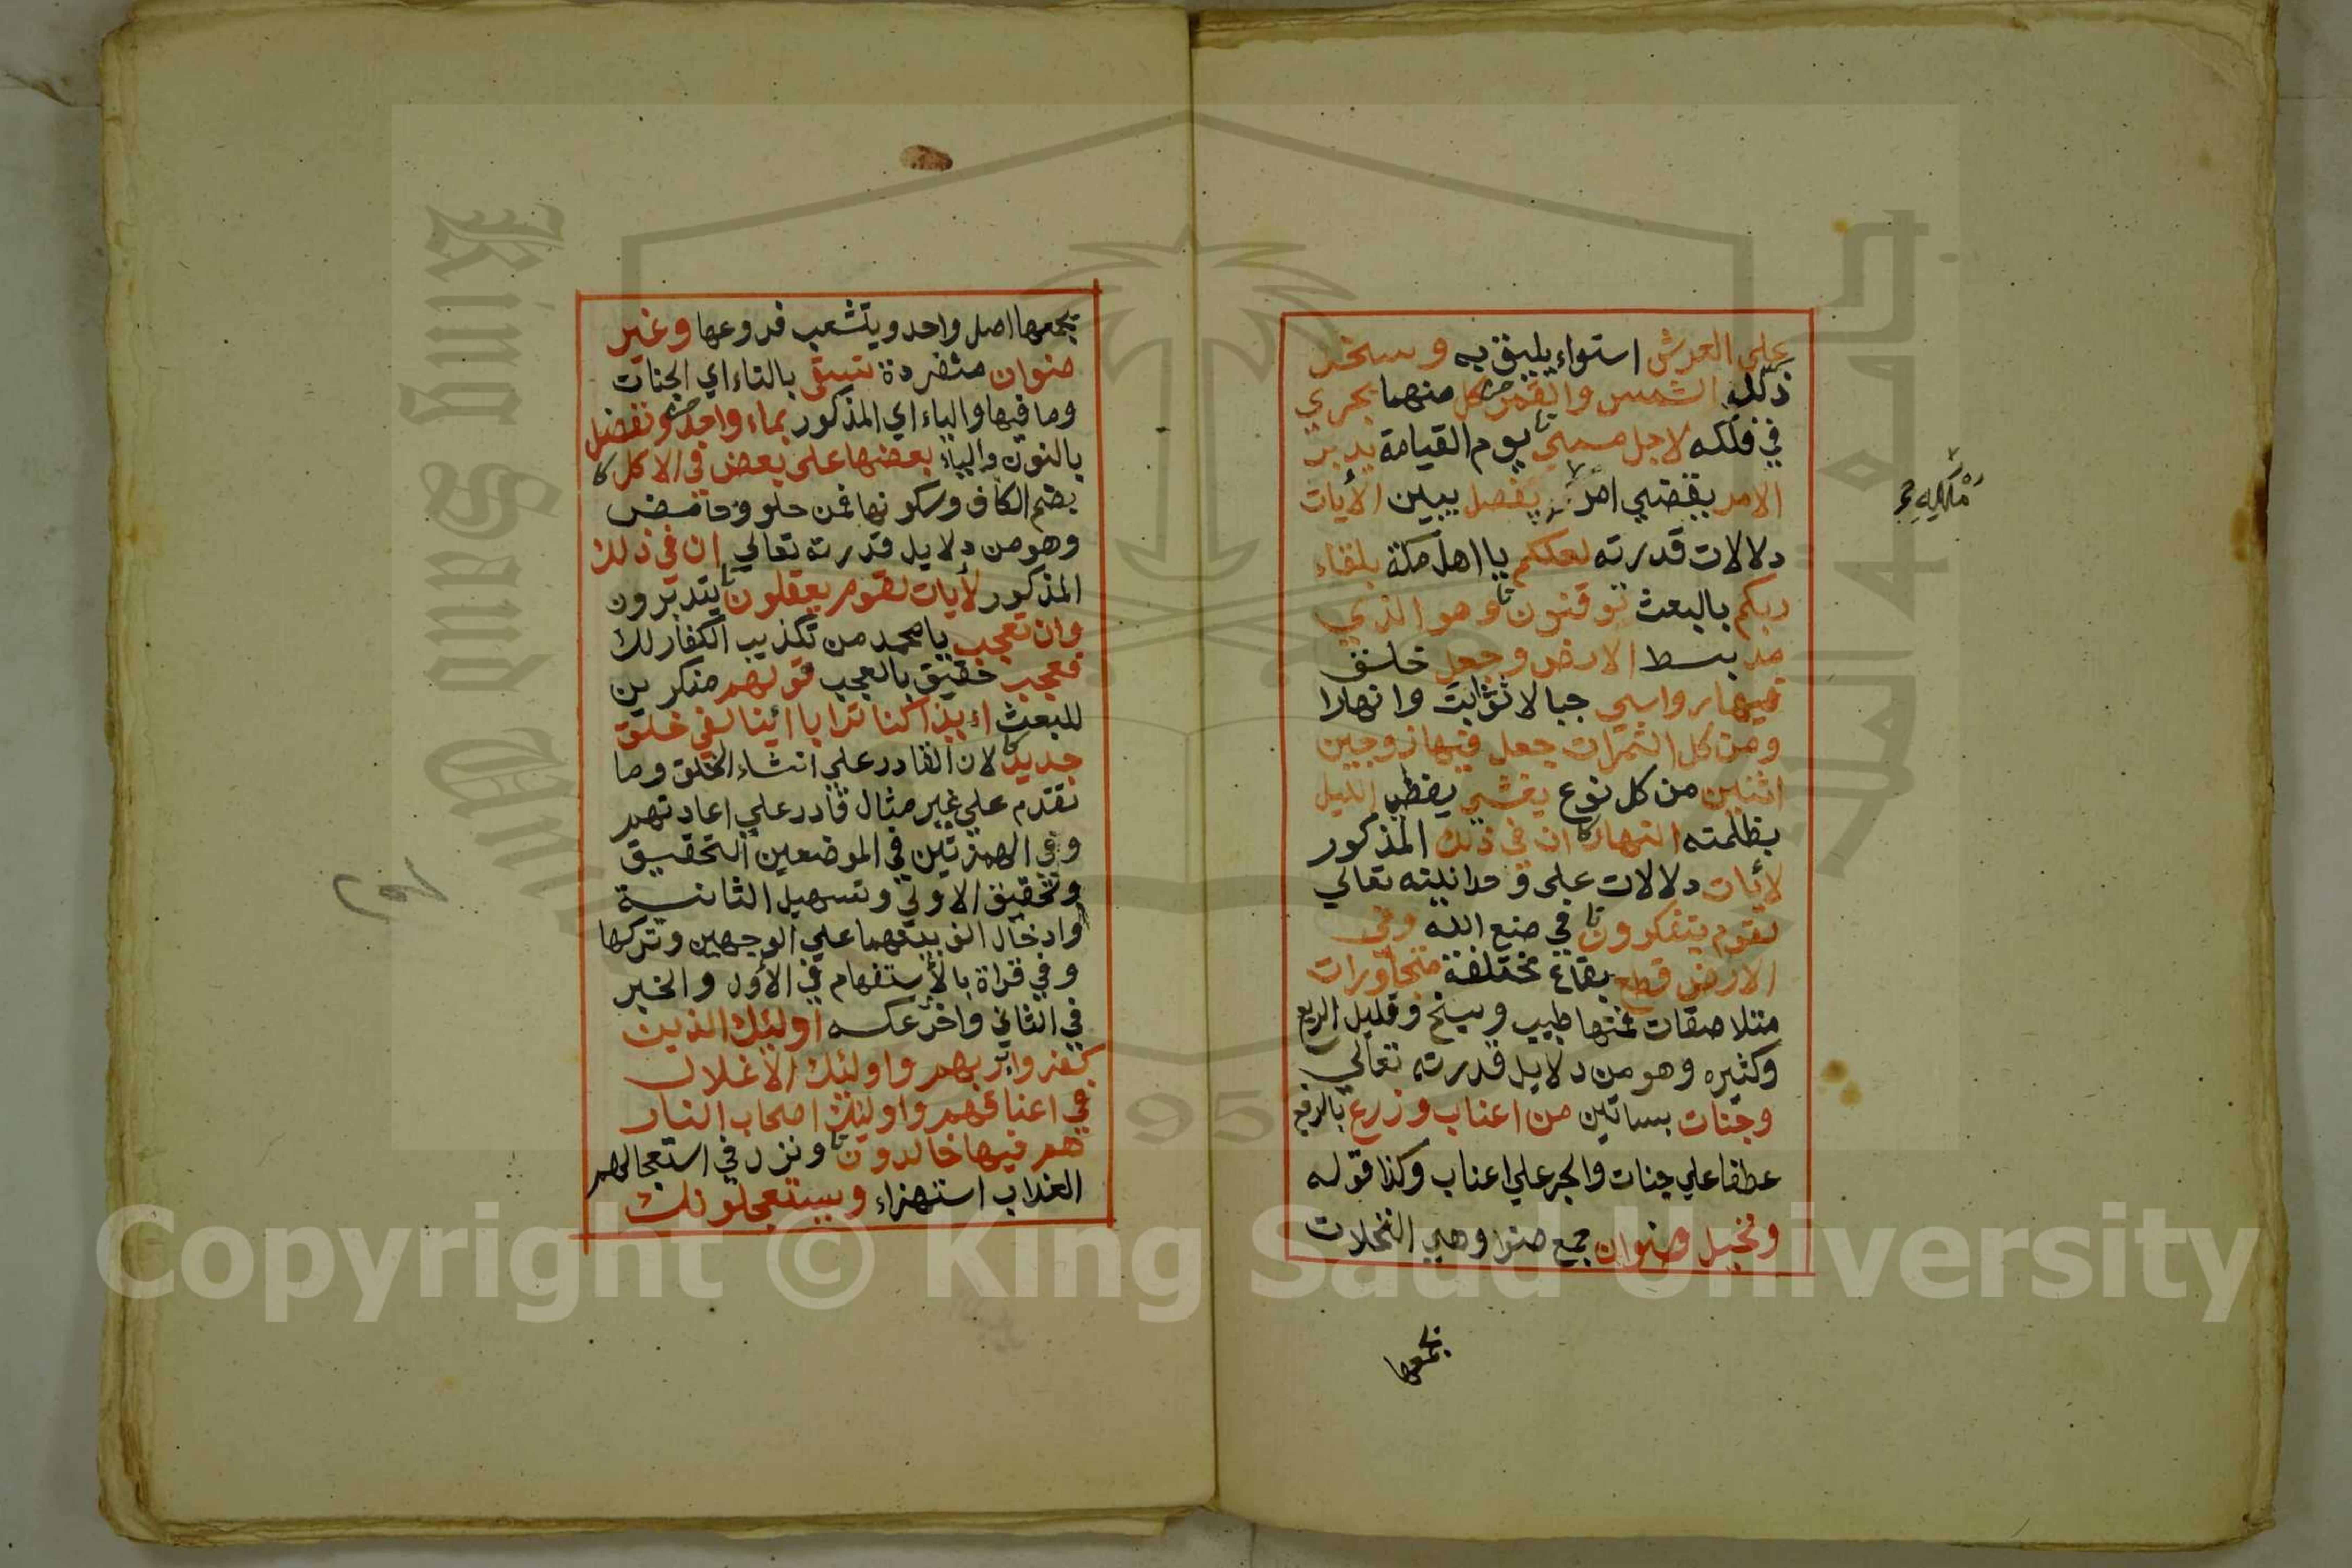 علي العرش استواء يليق به وسخر
ذلل الشمس والقمر كل منهما يجري
في فلكه لاجل مسمي يوم القيامة يدبر
الامر يقضي امر يفصل يبين الأيات
دلالات قدرته لعلكم يا اهل مكة بلقاء
ربكم بالبعث توقنون وهو الذي
مد بسط الارض وجعل خلق
فيها رواسي جبالا ثوابت وانهارا
ومن كل الثمرات جعل فيها زوجين
اثنين من كل نوع يغشي يغطي الليل
بظلمته النهار ان في ذلك المذكور
لأيات دلالات على وحدانيته تعالي
لقوم يتفكرون في صنع الله وفي
الارض قطع بقاع مختلفة متجاورات
متلاصقات فمنها طيب وسبخ وقليل الريع
وكثيره وهو من دلايل قدرته تعالي
وجنات بساتين من اعناب وزرع بالرفع
عطفا علي جنات والجر علي اعناب وكذا قوله
ونخيل صنوان جمع صنو وهي النخلات
يجمعها
يجمعها اصل واحد ويتشعب فروعها وغير
صنوان منفردة تسقى بالتاء اي الجنات
وما فيها والياء اي المذكور بماء واحد ونفضل
بالنون والياء بعضها على بعض في الاكل
بضم الكاف وسكونها فمن حلو وحامض
وهو من دلايل قدرته تعالي ان في ذلك
المذكور لأيات لقوم يعقلون يتدبرون
وان تعجب يا محمد من تكذيب الكفار لك
فعجب حقيق بالعجب قولهم منكرين
للبعث اءيذا كنا ترابا ائينا لفي خلق
جديد لان القادر علي انشاء الخلق وما
تقدم علي غير مثال قادر علي اعادتهم
وفي الهمزتين في الموضعين التحقيق
وتحقيق الاولي وتسهيل الثانية
وادخال الف بينهما علي الوجهين وتركها
وفي قراة بالأستفهام في الأول والخبر
في الثاني واخر عكسه اوليك الذين
كفروا بربهم واوليك الاغلال
في اعناقهم واوليك اصحاب النار
هم فيها خالدون ونزل في استعجالهم
العذاب استهزاء ويستعجلونك
King Saud University
جامعة الملك سعود
1957
Copyright © King Saud University